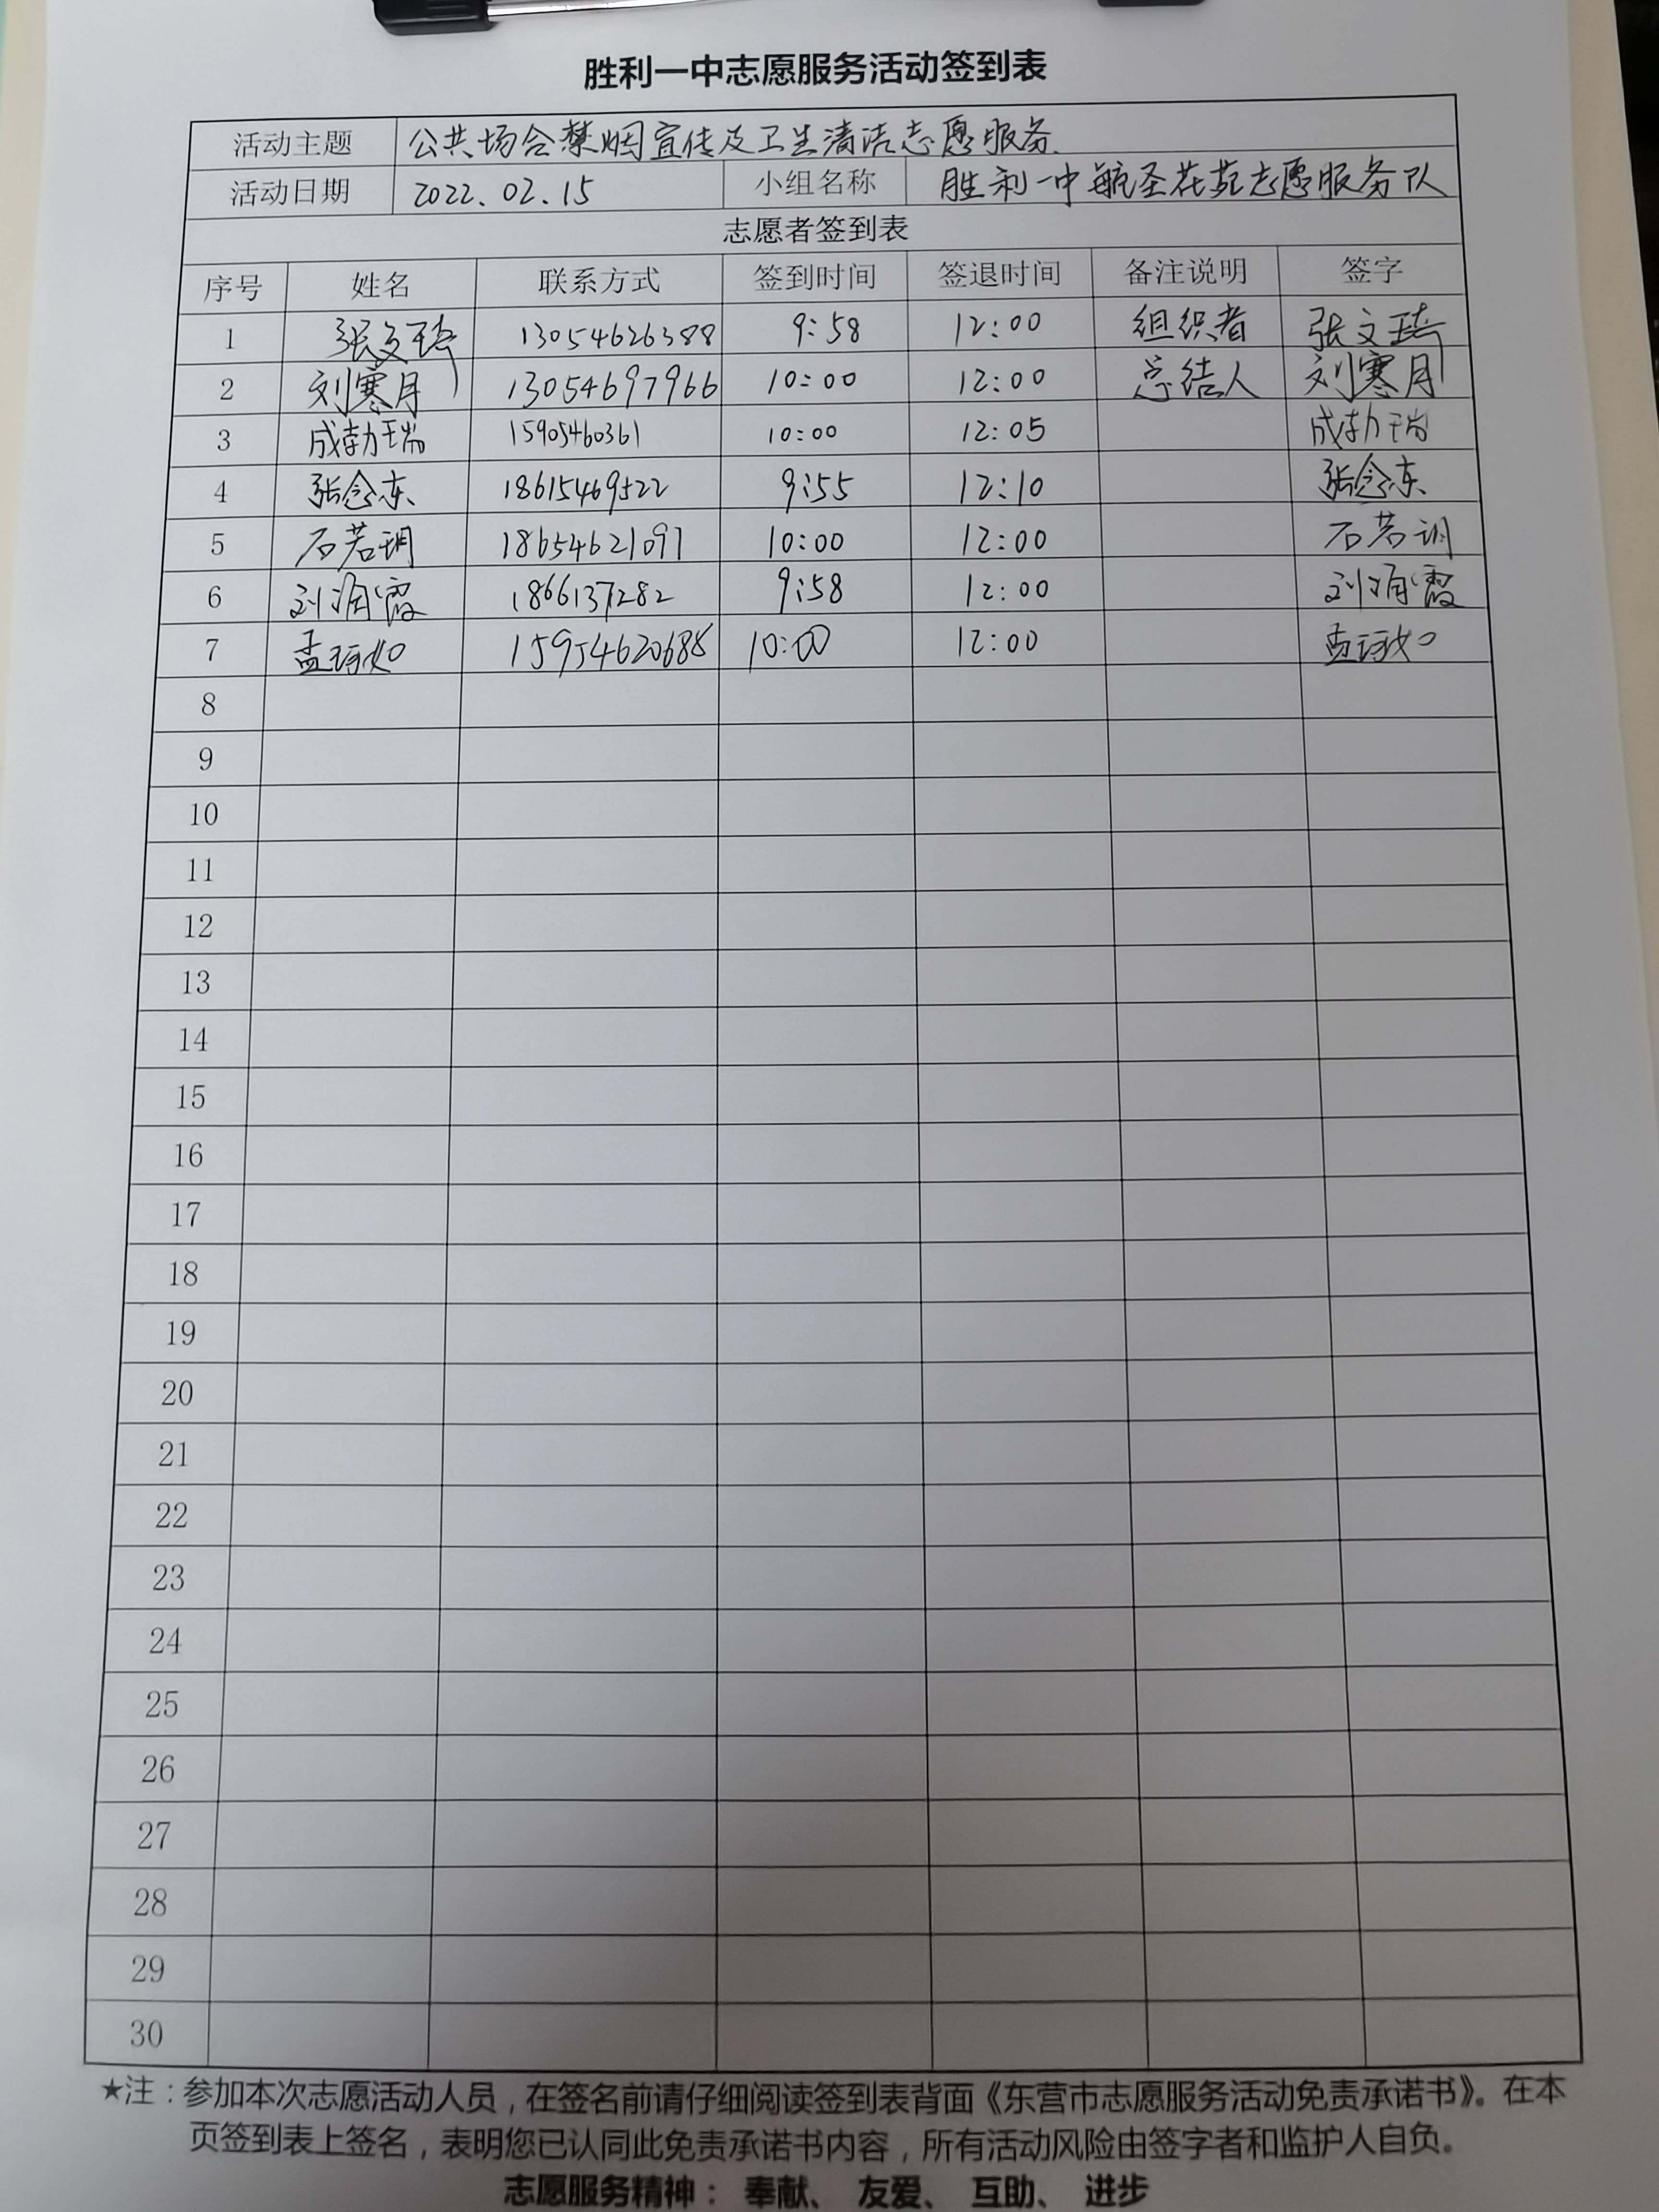 胜利一中志愿服务活动签到表
活动主题 公共场合禁烟宣传及卫生清洁志愿服务
活动日期 2022.02.15 小组名称 胜利一中航圣花苑志愿服务队
志愿者签到表
序号 姓名 联系方式 签到时间 签退时间 备注说明 签字
1 张文琦 13054626388 9:58 12:00 组织者 张文琦
2 刘寒月 13054697966 10:00 12:00 总结人 刘寒月
3 成勃瑞 15905460361 10:00 12:05 成勃瑞
4 张念东 18615469522 9:55 12:10 张念东
5 石若玥 18654621091 10:00 12:00 石若玥
6 刘涵霞 1866137282 9:58 12:00 刘涵霞
7 孟珂如 15954620688 10:00 12:00 孟珂如
8
9
10
11
12
13
14
15
16
17
18
19
20
21
22
23
24
25
26
27
28
29
30
★注：参加本次志愿活动人员，在签名前请仔细阅读签到表背面《东营市志愿服务活动免责承诺书》。在本
页签到表上签名，表明您已认同此免责承诺书内容，所有活动风险由签字者和监护人自负。
志愿服务精神： 奉献、 友爱、 互助、 进步